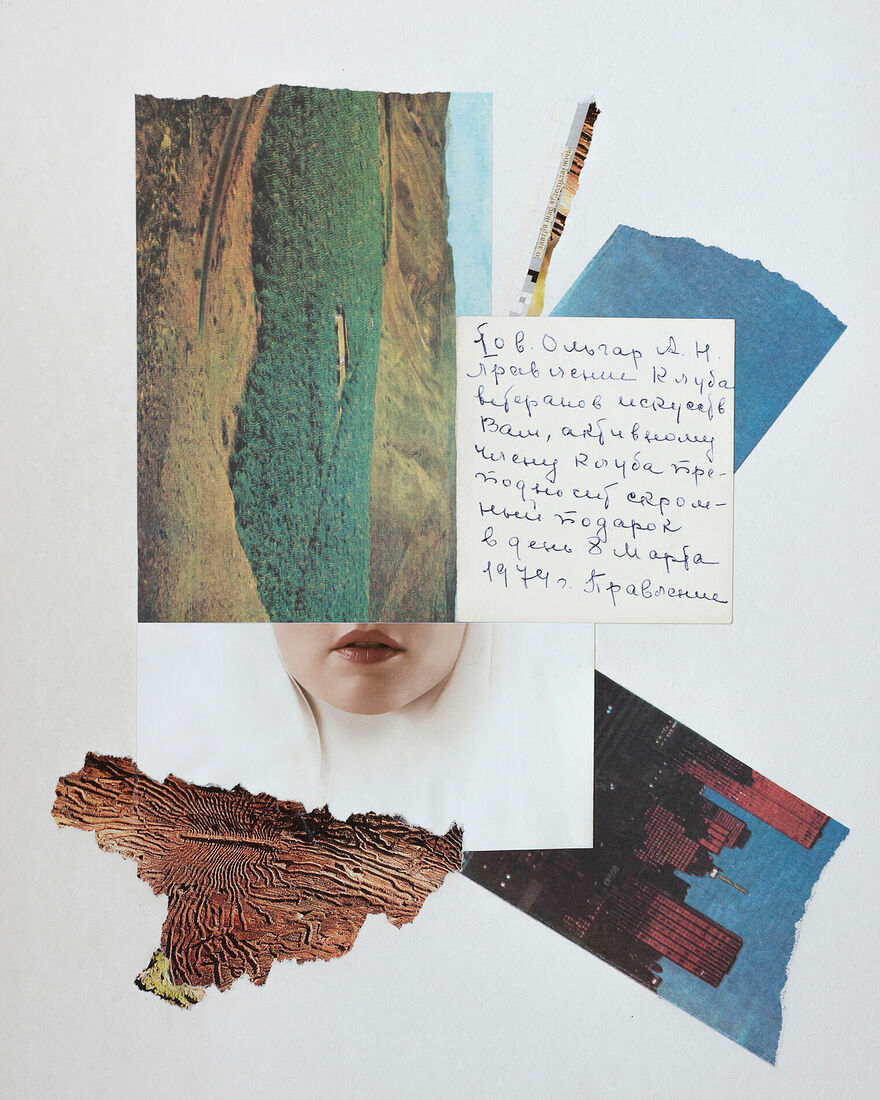 Тов. Ольгар А. Н.
Правление Клуба
ветеранов искусств
Вам, активному
члену Клуба пре-
подносит скром-
ный подарок
в день 8 Марта
1974 г. Правление